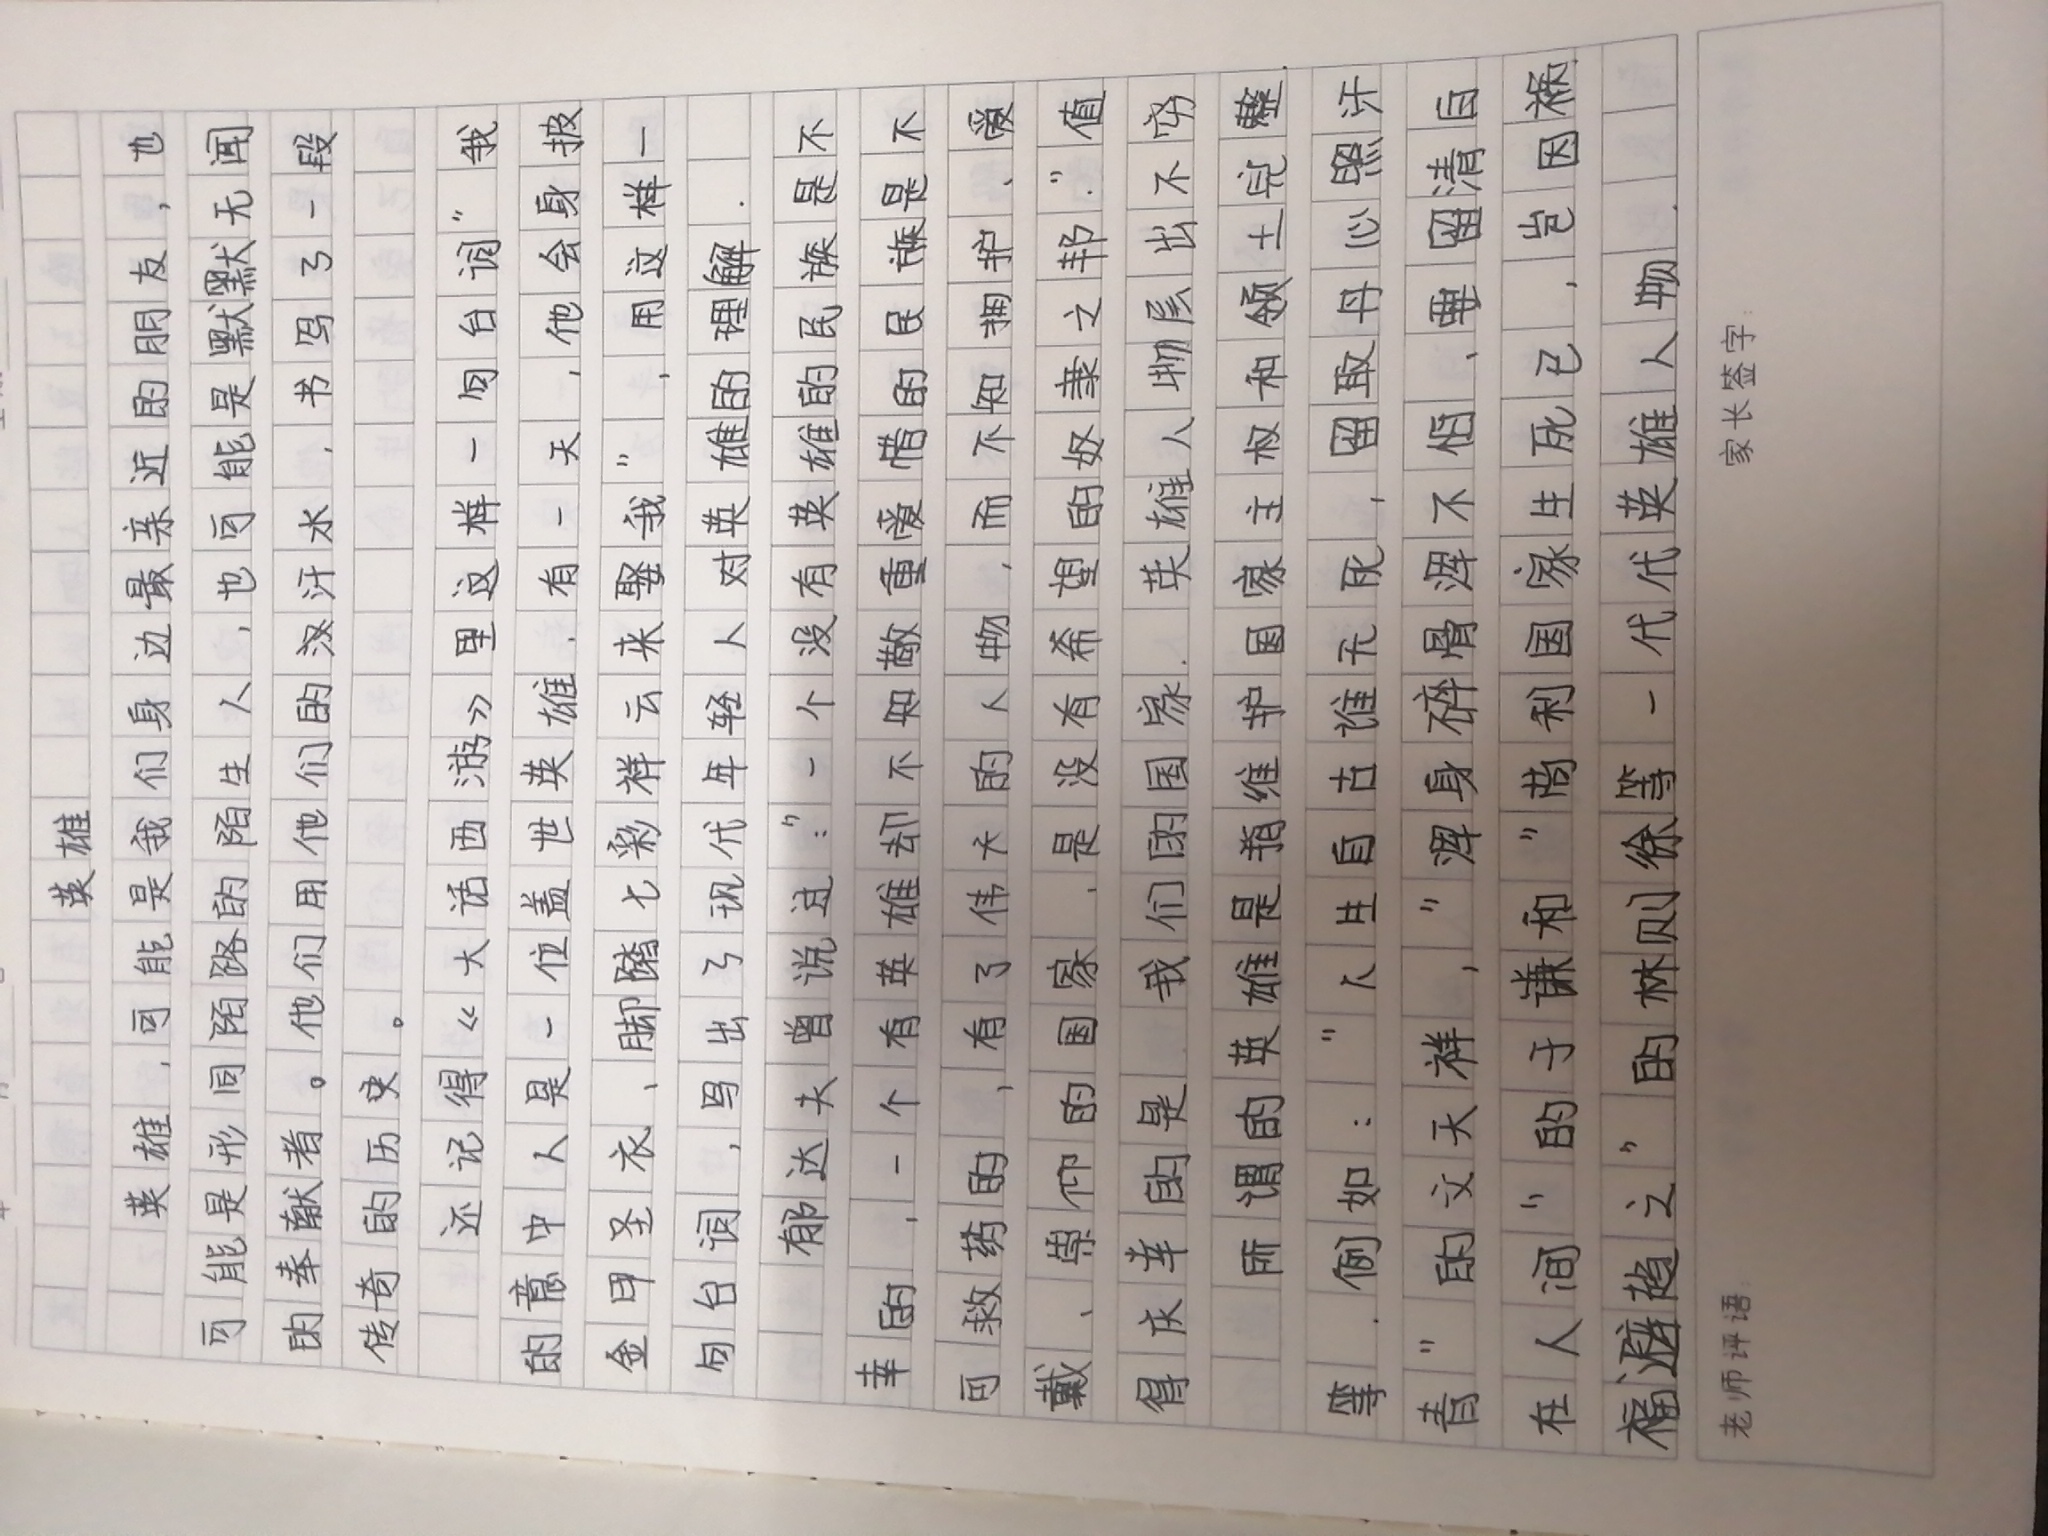 英雄
英雄，可能是我们身边最亲近的朋友，也
可能是形同陌路的陌生人，也可能是默默无闻
的奉献者。他们用他们的汗水，书写了一段
传奇的历史。
还记得《大话西游》里这样一句台词"我
的意中人是一位盖世英雄.有一天，他会身披
金甲圣衣、脚踏七彩祥云来娶我"，用这样一
句台词，写出了现代年轻人对英雄的理解.
郁达夫曾说过："一个没有英雄的民族是不
幸的，一个有英雄却不知敬重爱惜的民族是不
可救药的，有了伟大的人物，而不知拥护、爱
戴、崇仰的国家、是没有希望的奴隶之邦."值
得庆幸的是我们的国家.英雄人物层出不穷
所谓的英雄是指维护国家主权和领土完整
等.例如："人生自古谁无死，留取丹心照汗
青"的文天祥，"浑身碎骨浑不怕、要留清白
在人间"的于谦和"苟利国家生死已，岂因祸
福避趋之"的林则徐等一代代英雄人物.
老师评语:
家长签字: